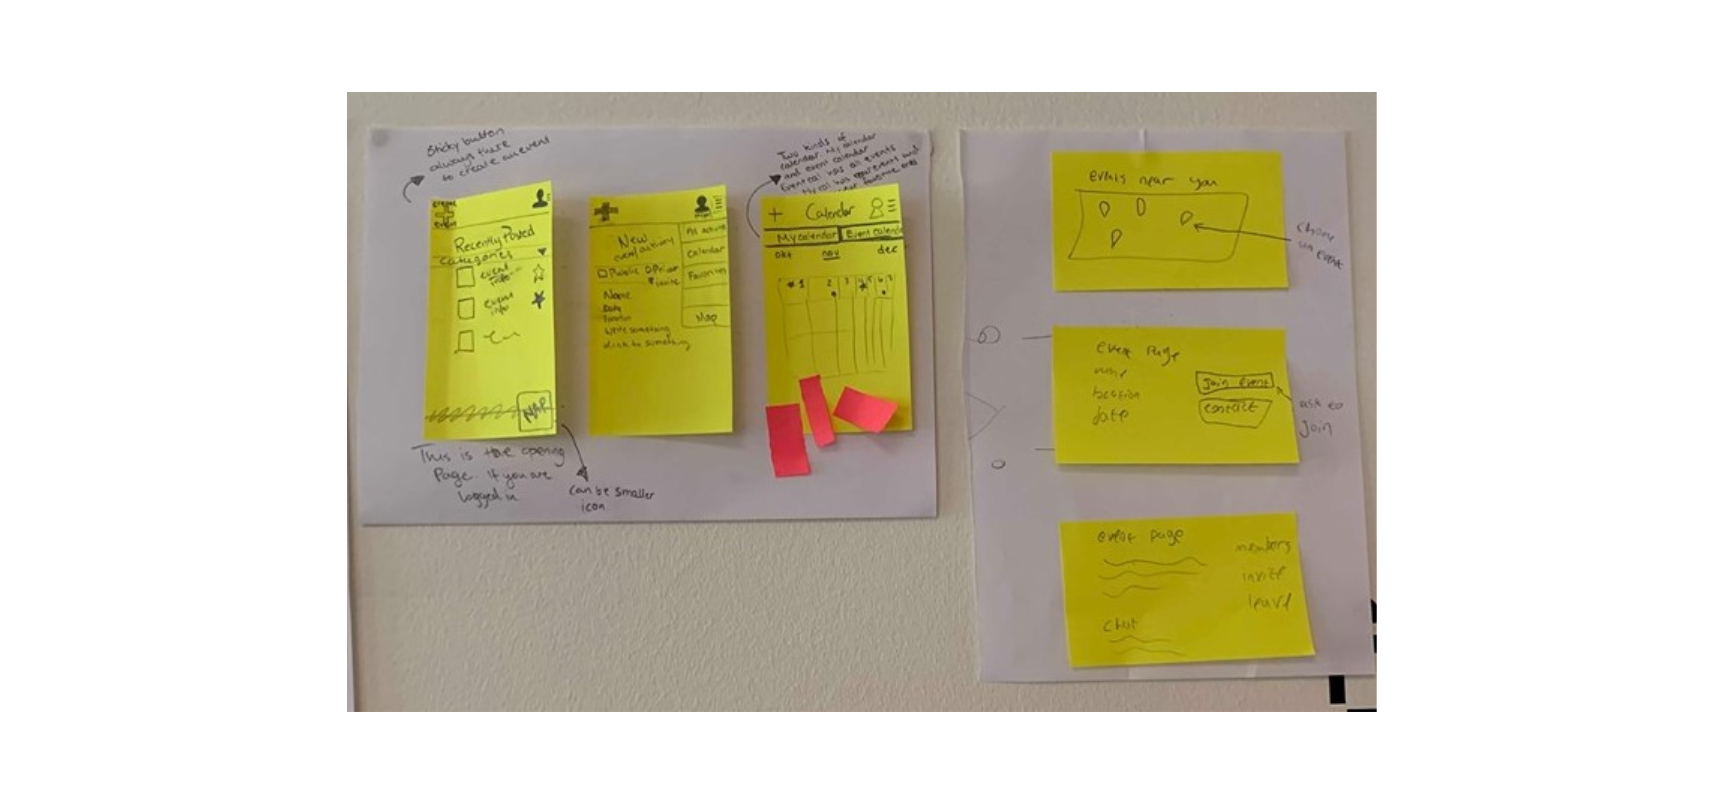 Sticky button
always there
to create an event
create
event
Recently Posted
categories
event
info
event
info
MAP
This is the opening
Page. If you are
logged in
can be smaller
icon
New
event/activity
Public
invite
Name
Date
location
write something
link to something
Calendar
Favorites
Map
Two kinds of
calendar. My calendar
and event calendar
Event cal has all events
My cal has
Calendar
My calendar
Event calendar
okt
nov
dec
1 2 3 4 5 6
events near you
choose
an event
event page
name
location
date
join event
contact
ask to
join
event page
members
invite
leave
chat